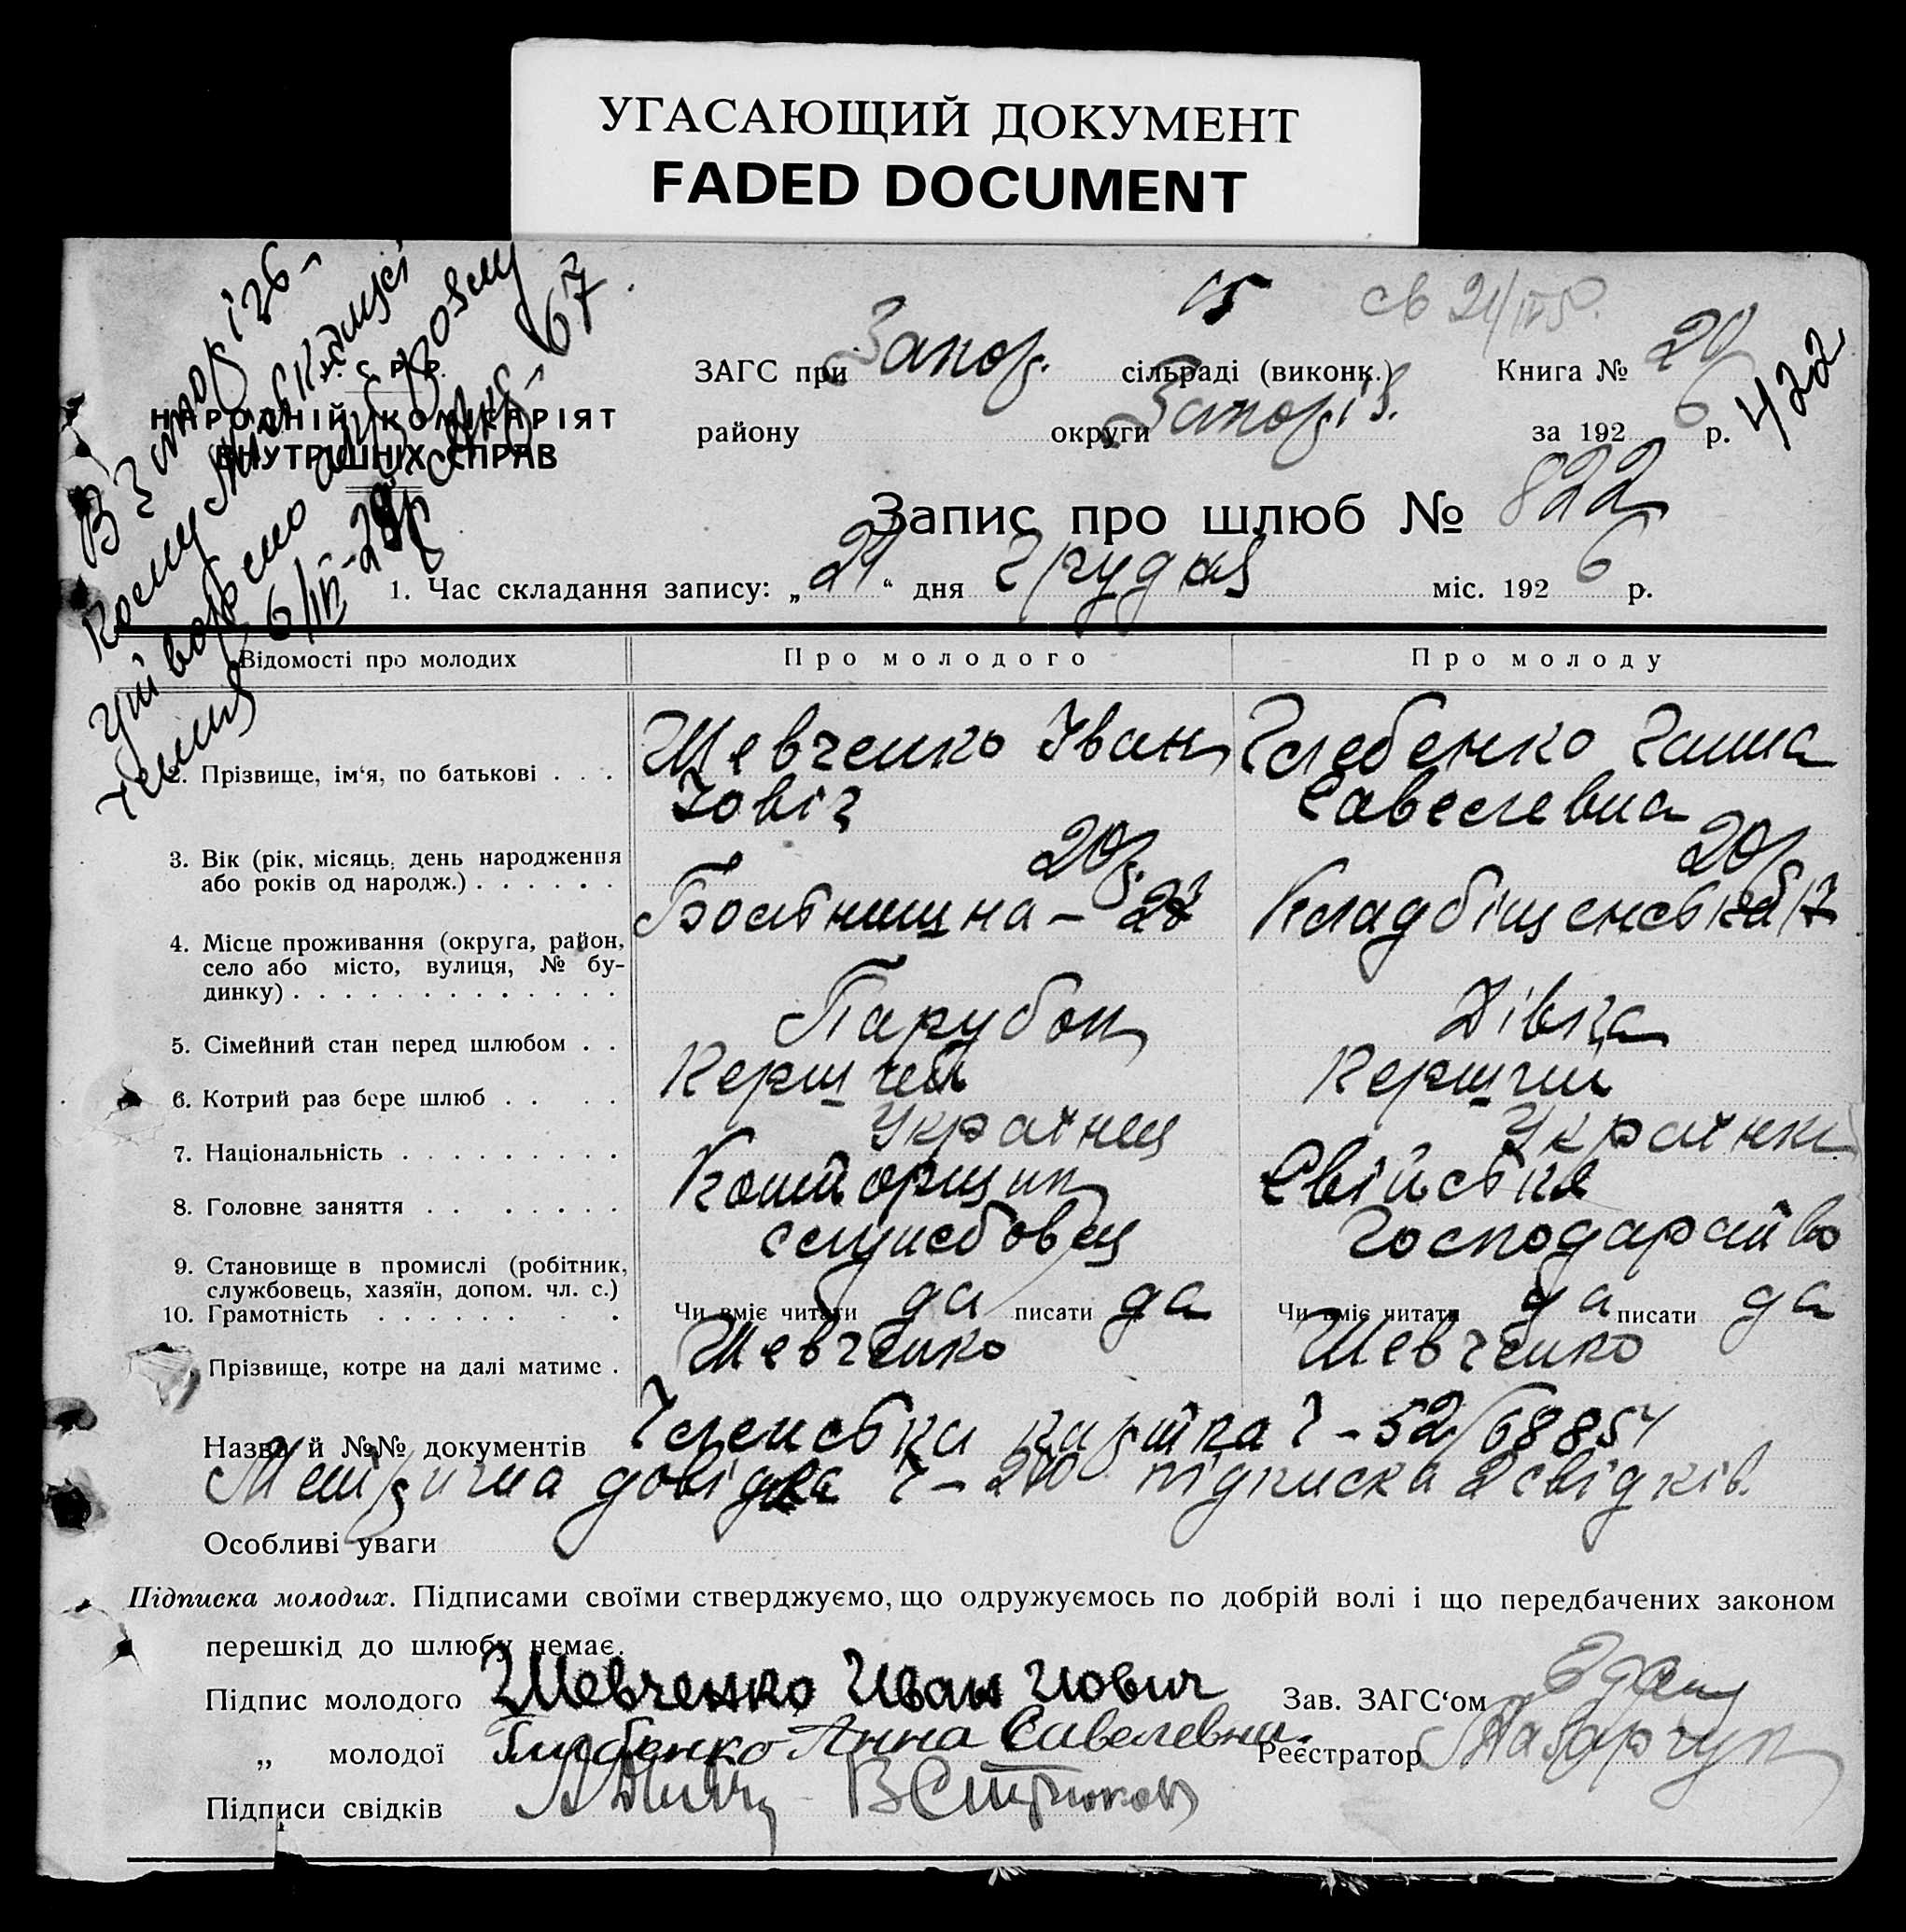 УГАСАЮЩИЙ ДОКУМЕНТ
FADED DOCUMENT
15
св 21/IV 50.
У. С. Р. Р.
НАРОДНІЙ КОМІСАРІЯТ
ВНУТРІШНІХ СПРАВ
В Запоріз-
кому міськзагсі
утворено акт розлу
чення 6/IV-29р 67
ЗАГС при Запор. сільраді (виконк.) Книга № 20
району округи Запоріз. за 1926 р.
422
Запис про шлюб № 822
1. Час складання запису: „21“ дня Грудня міс. 1926 р.
Відомості про молодих Про молодого Про молоду
2. Прізвище, ім‘я, по батькові . . . Шевченко Іван Глебенко Ганна
Іовіч Савелевна
3. Вік (рік, місяць, день народження 20р. 20р
або років од народж.) . . . . . .
4. Місце проживання (округа, район, Больнишна – 27 Кладбіщенська 17
село або місто, вулиця, № бу-
динку) . . . . . . . . . . . . .
5. Сімейний стан перед шлюбом . . Парубок Дівка
6. Котрий раз бере шлюб . . . . Першчей Першчий
7. Національність . . . . . . . . . Українец Українка
8. Головне заняття . . . . . . . . Конторщик Свійське
9. Становище в промислі (робітник, службовец господарство
службовець, хазяїн, допом. чл. с.)
10. Грамотність . . . . . . . . Чи вміє читати да писати да Чи вміє читати да писати да
Прізвище, котре на далі матиме . Шевченко Шевченко
Назва й №№ документів Членська картка Ч-52/68854
Метрична довідка Ч-210 підписка 2 свідків.
Особливі уваги
Підписка молодих. Підписами своїми стверджуємо, що одружуємось по добрій волі і що передбачених законом
перешкід до шлюбу немає.
Підпис молодого Шевченко Иван Иович Зав. ЗАГС‘ом
„ молодої Глебенко Анна Савелевна. Реєстратор Назарчук
Підписи свідків